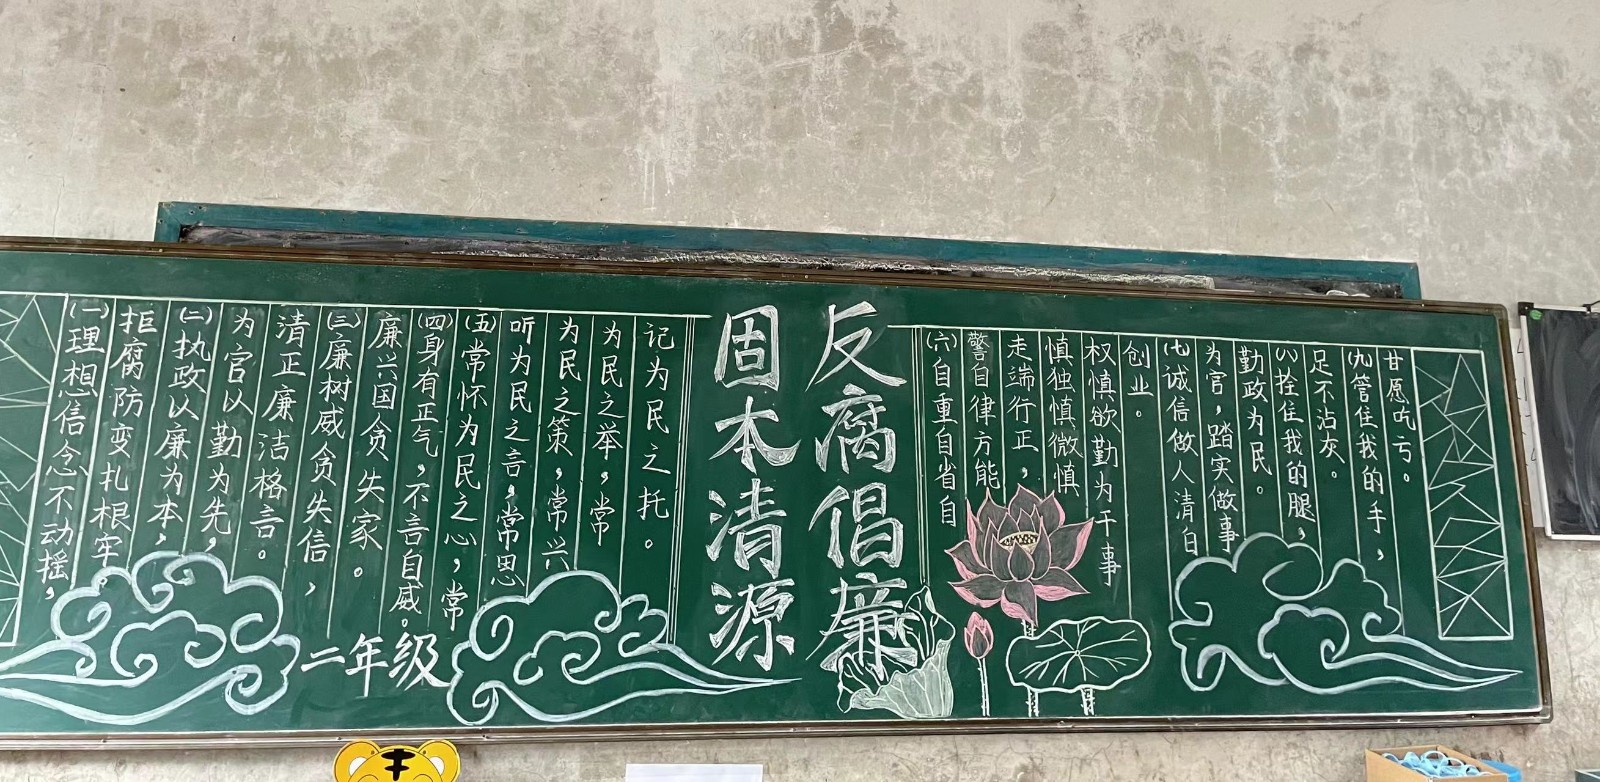 反腐倡廉
固本清源
(一)理想信念不动摇,
拒腐防变扎根牢。
(二)执政以廉为本,
为官以勤为先,
清正廉洁格言。
(三)廉树威贪失信,
廉兴国贪失家。
(四)身有正气,不言自威。
(五)常怀为民之心,常
听为民之言,常思
为民之策,常兴
为民之举,常
记为民之托。
(六)自重自省自
警自律方能
走端行正,
慎独慎微慎
权慎欲勤为干事
创业。
(七)诚信做人清白
为官,踏实做事
勤政为民。
(八)拴住我的腿,
足不沾灰。
(九)管住我的手,
甘愿吃亏。
二年级